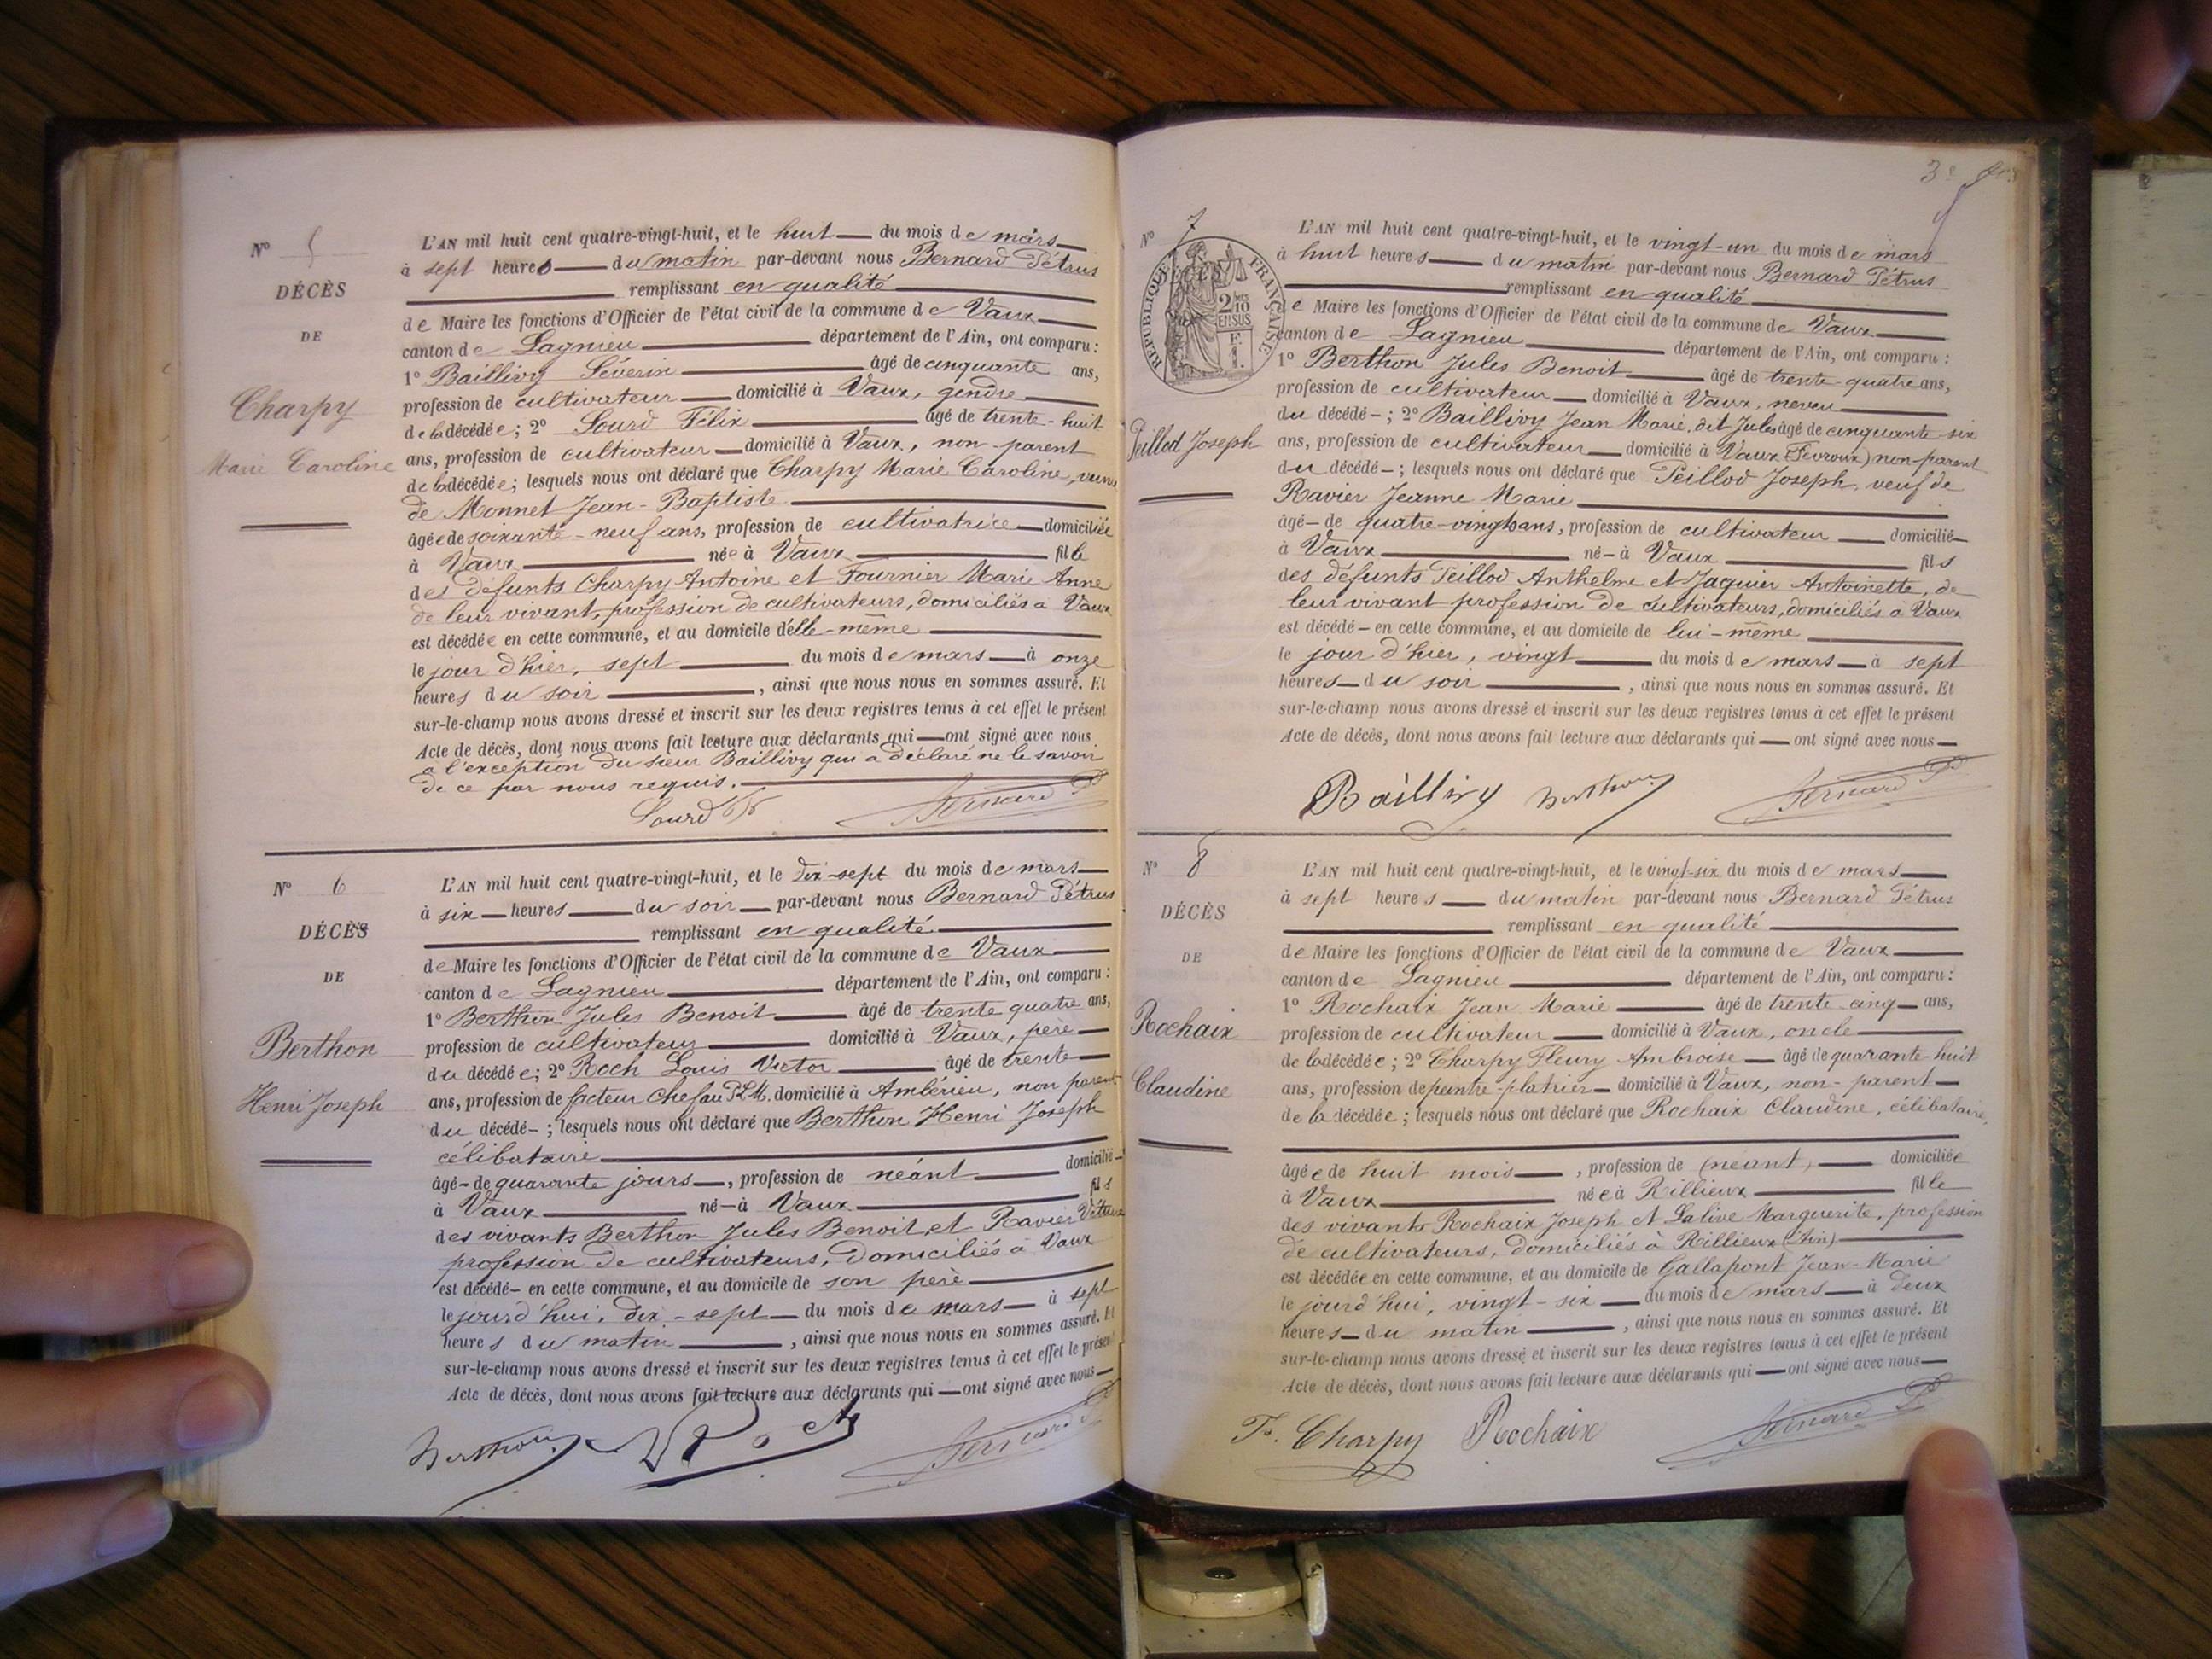 N° 5
DÉCÈS
DE
Charpy
Marie Caroline
L'AN mil huit cent quatre-vingt-huit, et le huit du mois de mars
à sept heures du matin par-devant nous Bernard Pétrus
remplissant en qualité
de Maire les fonctions d'Officier de l'état civil de la commune de Vaux
canton de Lagnieu département de l'Ain, ont comparu :
1° Baillivy Séverin âgé de cinquante ans,
profession de cultivateur domicilié à Vaux, gendre
de la décédée ; 2° Sourd Félix âgé de trente-huit
ans, profession de cultivateur domicilié à Vaux, non parent
de la décédée ; lesquels nous ont déclaré que Charpy Marie Caroline, veuve
de Monnet Jean-Baptiste
âgée de soixante-neuf ans, profession de cultivatrice domiciliée
à Vaux née à Vaux fille
des défunts Charpy Antoine et Fournier Marie Anne
de leur vivant, profession de cultivateurs, domiciliés à Vaux
est décédée en cette commune, et au domicile d'elle-même
le jour d'hier, sept du mois de mars à onze
heures du soir , ainsi que nous nous en sommes assuré. Et
sur-le-champ nous avons dressé et inscrit sur les deux registres tenus à cet effet le présent
Acte de décès, dont nous avons fait lecture aux déclarants qui ont signé avec nous
à l'exception du sieur Baillivy qui a déclaré ne le savoir
de ce par nous requis.
Sourd Bernard P
N° 6
DÉCÈS
DE
Berthon
Henri Joseph
L'AN mil huit cent quatre-vingt-huit, et le dix-sept du mois de mars
à six heures du soir par-devant nous Bernard Pétrus
remplissant en qualité
de Maire les fonctions d'Officier de l'état civil de la commune de Vaux
canton de Lagnieu département de l'Ain, ont comparu :
1° Berthon Jules Benoit âgé de trente quatre ans,
profession de cultivateur domicilié à Vaux, père
du décédée ; 2° Roch Louis Victor âgé de trente
ans, profession de facteur chef au P.L.M. domicilié à Ambérieu, non parent
du décédé ; lesquels nous ont déclaré que Berthon Henri Joseph
célibataire
âgé de quarante jours , profession de néant domicilié
à Vaux né à Vaux fils
des vivants Berthon Jules Benoit, et Ravier
profession de cultivateurs, domiciliés à Vaux
est décédé en cette commune, et au domicile de son père
le jourd'hui, dix-sept du mois de mars à sept
heures du matin , ainsi que nous nous en sommes assuré. Et
sur-le-champ nous avons dressé et inscrit sur les deux registres tenus à cet effet le présent
Acte de décès, dont nous avons fait lecture aux déclarants qui ont signé avec nous
Berthon Roch Bernard P
3e
N° 7
RÉPUBLIQUE FRANÇAISE
2/10 EN SUS
Peillod Joseph
L'AN mil huit cent quatre-vingt-huit, et le vingt-un du mois de mars
à huit heures du matin par-devant nous Bernard Pétrus
remplissant en qualité
de Maire les fonctions d'Officier de l'état civil de la commune de Vaux
canton de Lagnieu département de l'Ain, ont comparu :
1° Berthon Jules Benoit âgé de trente-quatre ans,
profession de cultivateur domicilié à Vaux, neveu
du décédé ; 2° Baillivy Jean Marie, dit Jules âgé de cinquante-six
ans, profession de cultivateur domicilié à Vaux (Févroux) non-parent
du décédé ; lesquels nous ont déclaré que Peillod Joseph, veuf de
Ravier Jeanne Marie
âgé de quatre-vingts ans, profession de cultivateur domicilié
à Vaux né à Vaux fils
des défunts Peillod Anthelme et Jaquier Antoinette, de
leur vivant profession de cultivateurs, domiciliés à Vaux
est décédé en cette commune, et au domicile de lui-même
le jour d'hier, vingt du mois de mars à sept
heures du soir , ainsi que nous nous en sommes assuré. Et
sur-le-champ nous avons dressé et inscrit sur les deux registres tenus à cet effet le présent
Acte de décès, dont nous avons fait lecture aux déclarants qui ont signé avec nous
Baillivy Berthon Bernard P
N° 8
DÉCÈS
DE
Rochaix
Claudine
L'AN mil huit cent quatre-vingt-huit, et le vingt-six du mois de mars
à sept heures du matin par-devant nous Bernard Pétrus
remplissant en qualité
de Maire les fonctions d'Officier de l'état civil de la commune de Vaux
canton de Lagnieu département de l'Ain, ont comparu :
1° Rochaix Jean Marie âgé de trente cinq ans,
profession de cultivateur domicilié à Vaux, oncle
de la décédée ; 2° Charpy Fleury Ambroise âgé de quarante-huit
ans, profession de peintre-plâtrier domicilié à Vaux, non-parent
de la décédée ; lesquels nous ont déclaré que Rochaix Claudine, célibataire,
âgée de huit mois , profession de (néant) domiciliée
à Vaux née à Rillieux fille
des vivants Rochaix Joseph et Lalive Marguerite, profession
de cultivateurs, domiciliés à Rillieux (Ain)
est décédée en cette commune, et au domicile de Gallapont Jean-Marie
le jourd'hui, vingt-six du mois de mars à deux
heures du matin , ainsi que nous nous en sommes assuré. Et
sur-le-champ nous avons dressé et inscrit sur les deux registres tenus à cet effet le présent
Acte de décès, dont nous avons fait lecture aux déclarants qui ont signé avec nous
F. Charpy Rochaix Bernard P